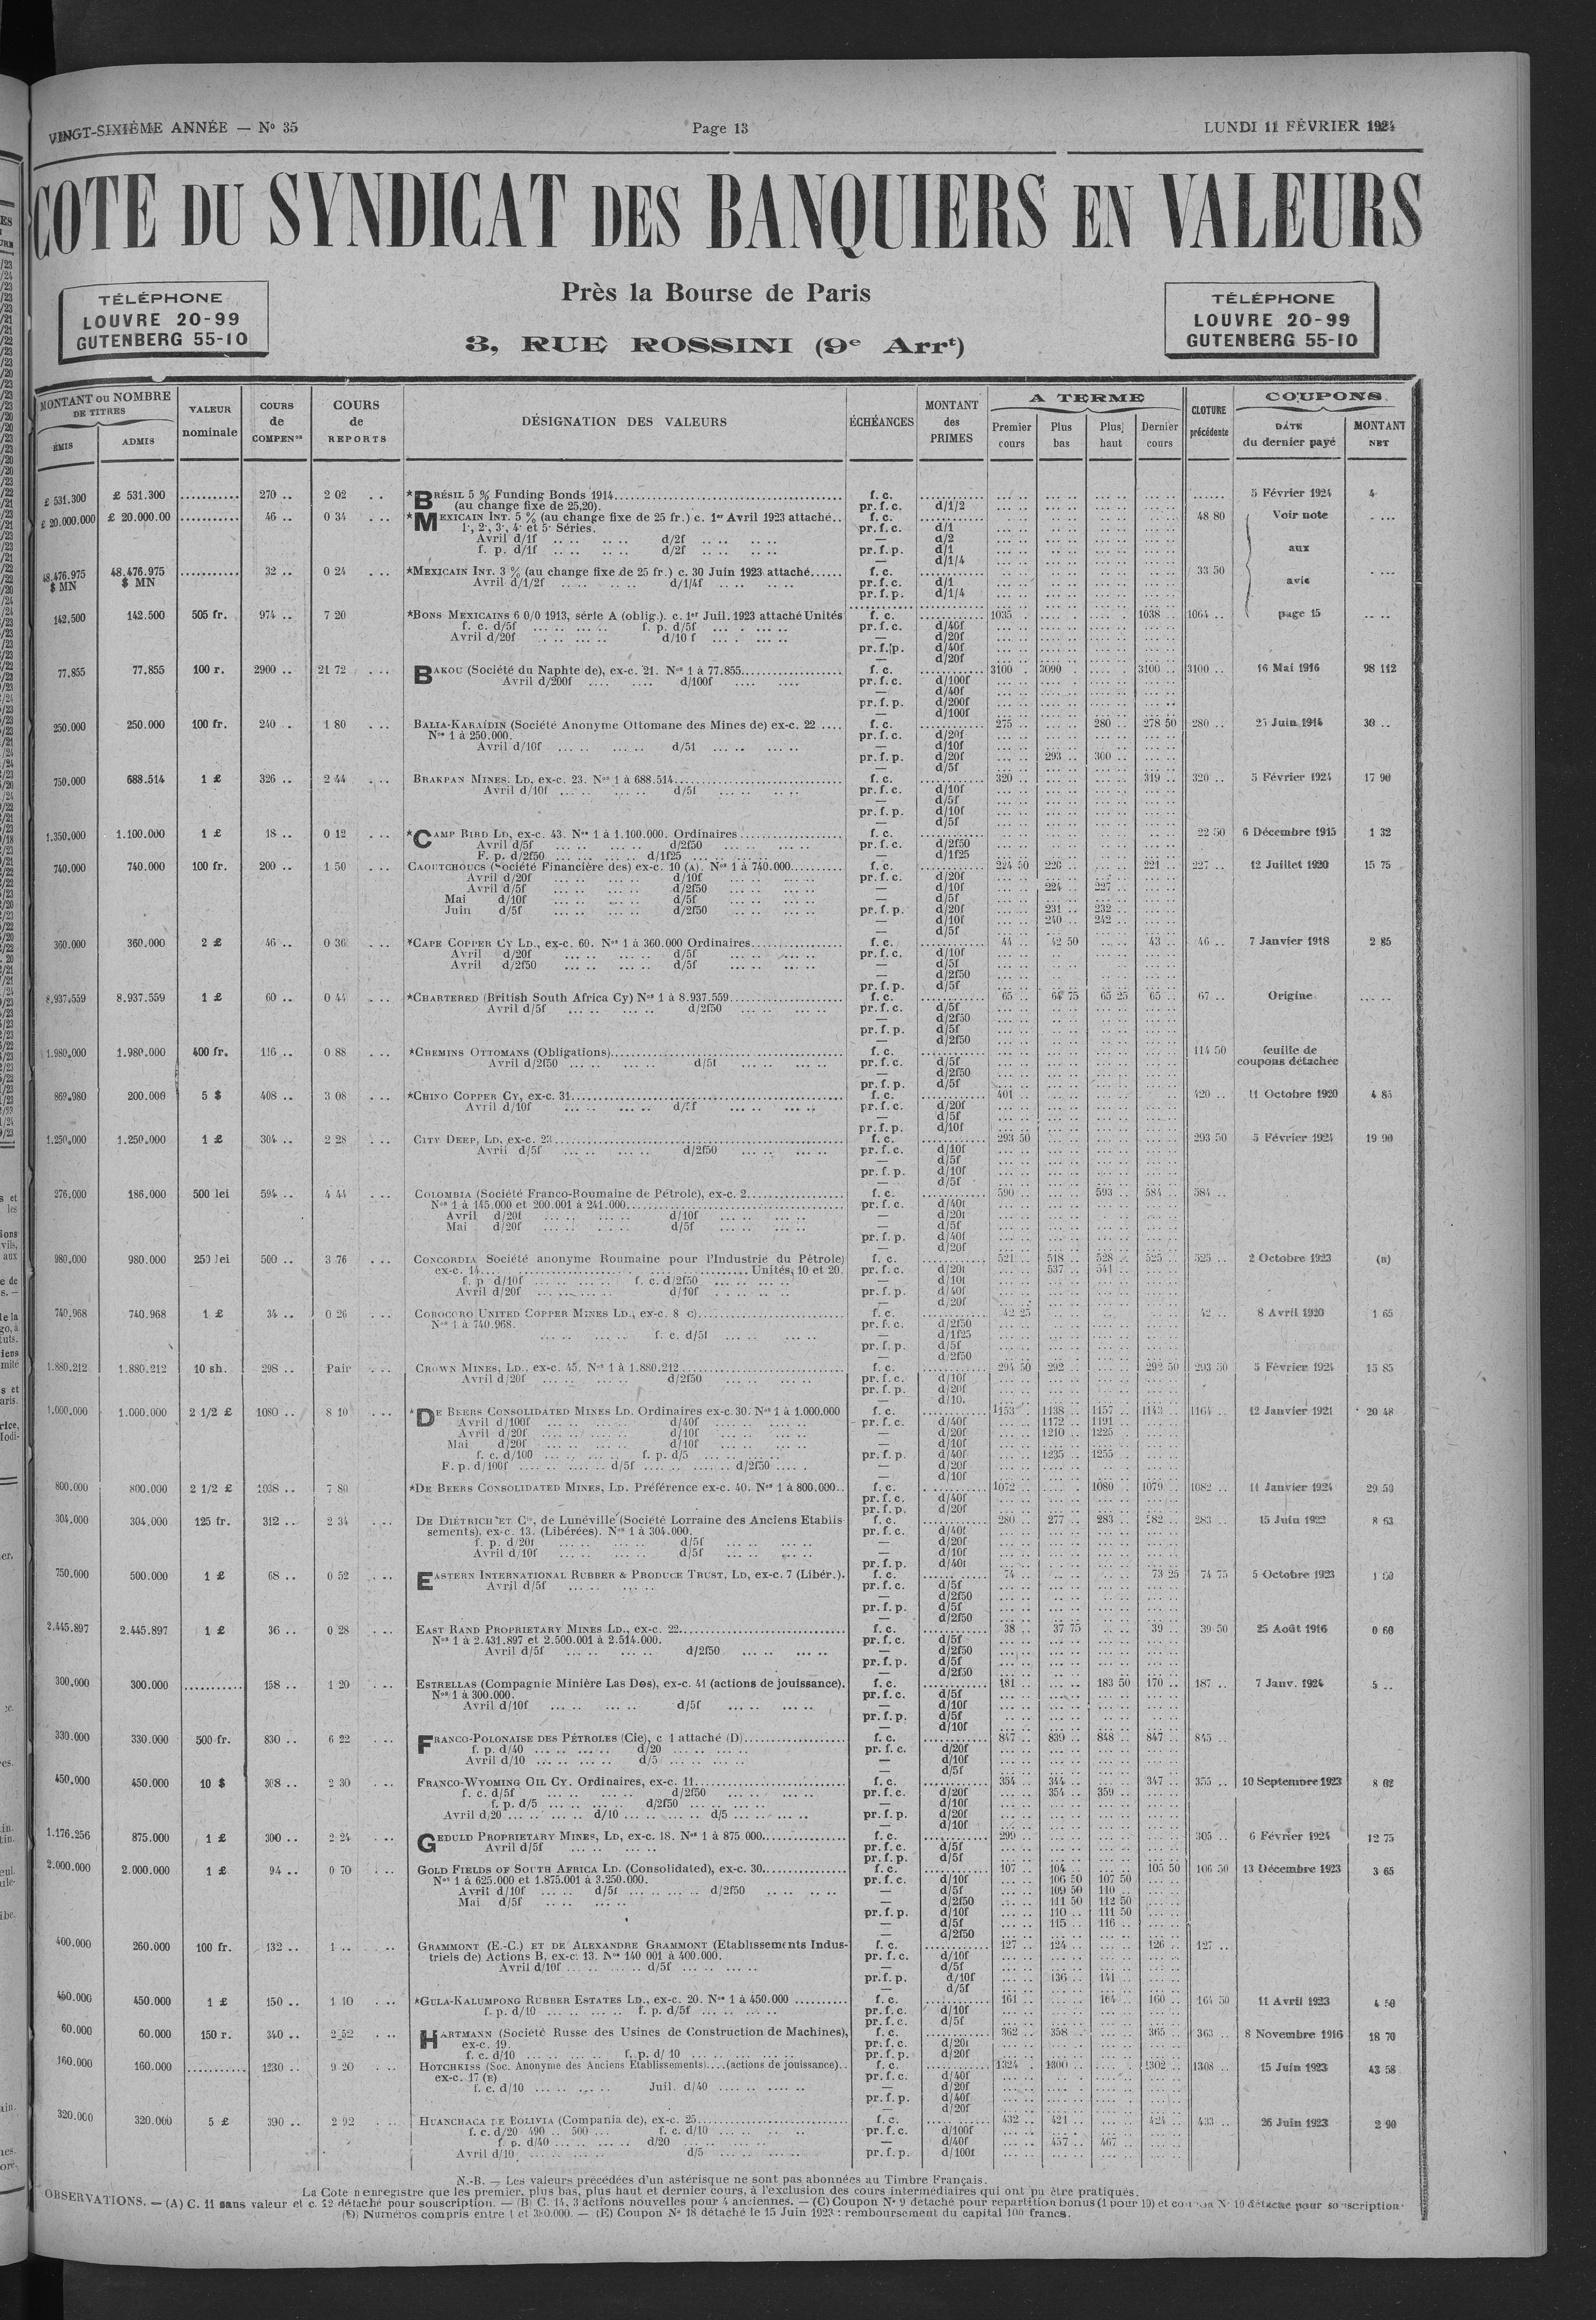 VINGT-SIXIÈME ANNÉE — N° 35 Page 13 LUNDI 11 FÉVRIER 1924
COTE DU SYNDICAT DES BANQUIERS EN VALEURS
Près la Bourse de Paris
3, RUE ROSSINI (9e Arrt)
TÉLÉPHONE
LOUVRE 20-99
GUTENBERG 55-10
TÉLÉPHONE
LOUVRE 20-99
GUTENBERG 55-10
MONTANT ou NOMBRE DE TITRES
ÉMIS ADMIS
VALEUR nominale
COURS de COMPENon
COURS de REPORTS
DÉSIGNATION DES VALEURS
ÉCHÉANCES
MONTANT des PRIMES
A TERME
Premier cours Plus bas Plus haut Dernier cours
CLOTURE précédente
COUPONS
DATE du dernier payé
MONTANT NET
£ 531.300 £ 531.300 .......... 270 .. 2 02 .. *BRÉSIL 5 % Funding Bonds 1914 f. c. 5 Février 1924 4
(au change fixe de 25,20). pr. f. c. d/1/2
£ 20.000.000 £ 20.000.00 .......... 46 .. 0 34 *MEXICAIN INT. 5 % (au change fixe de 25 fr.) c. 1er Avril 1923 attaché.. f. c. 48 80 Voir note
1e, 2e, 3e, 4e et 5e Séries. pr. f. c. d/1
Avril d/1f d/2f — d/2
f. p. d/1f d/2f pr. f. p. d/1 aux
d/1/4
48.476.975 $ MN 48.476.975 $ MN .......... 32 .. 0 24 *MEXICAIN INT. 3 % (au change fixe de 25 fr.) c. 30 Juin 1923 attaché f. c. 33 50
Avril d/1/2f d/1/4f pr. f. c. d/1 avis
pr. f. p. d/1/4
142.500 142.500 505 fr. 974 .. 7 20 *BONS MEXICAINS 6 0/0 1913, série A (oblig.). c. 1er Juil. 1923 attaché Unités f. c. 1035 1038 1064 page 15
f. c. d/5f f. p. d/5f pr. f. c. d/40f
Avril d/20f d/10 f — d/20f
pr. f. p. d/40f
— d/20f
77.855 77.855 100 r. 2900 .. 21 72 BAKOU (Société du Naphte de), ex-c. 21. Nos 1 à 77.855 f. c. 3100 3090 3100 3100 16 Mai 1916 98 112
Avril d/200f d/100f pr. f. c. d/100f
— d/40f
pr. f. p. d/200f
— d/100f
250.000 250.000 100 fr. 240 . 1 80 BALIA-KARAÏDIN (Société Anonyme Ottomane des Mines de) ex-c. 22 f. c. 275 280 278 50 280 25 Juin 1914 30 ..
Nos 1 à 250.000. pr. f. c. d/20f
Avril d/10f d/5f — d/10f
pr. f. p. d/20f 293 300
— d/5f
750.000 688.514 1 £ 326 .. 2 44 BRAKPAN MINES. LD, ex-c. 23. Nos 1 à 688.514 f. c. 320 319 320 5 Février 1924 17 90
Avril d/10f d/5f pr. f. c. d/10f
— d/5f
pr. f. p. d/10f
— d/5f
1.350.000 1.100.000 1 £ 18 .. 0 12 *CAMP BIRD LD, ex-c. 43. Nos 1 à 1.100.000. Ordinaires f. c. 22 50 6 Décembre 1915 1 32
Avril d/5f d/2f50 pr. f. c. d/2f50
F. p. d/2f50 d/1f25 — d/1f25
740.000 740.000 100 fr. 200 .. 1 50 CAOUTCHOUCS (Société Financière des) ex-c. 10 (A). Nos 1 à 740.000 f. c. 224 50 220 221 227 12 Juillet 1920 15 75
Avril d/20f d/10f pr. f. c. d/20f
Avril d/5f d/2f50 — d/10f 224 227
Mai d/10f d/5f — d/5f
Juin d/5f d/2f50 pr. f. p. d/20f 231 232
— d/10f 240 242
— d/5f
360.000 360.000 2 £ 46 .. 0 36 *CAPE COPPER CY LD., ex-c. 60. Nos 1 à 360.000 Ordinaires f. c. 44 42 50 43 46 7 Janvier 1918 2 85
Avril d/20f d/5f pr. f. c. d/10f
Avril d/2f50 d/5f — d/5f
— d/2f50
pr. f. p. d/5f
8.937.559 8.937.559 1 £ 60 .. 0 44 *CHARTERED (British South Africa Cy) Nos 1 à 8.937.559 f. c. 65 64 75 65 25 65 67 Origine
Avril d/5f d/2f50 pr. f. c. d/5f
— d/2f50
pr. f. p. d/5f
— d/2f50
1.980.000 1.980.000 400 fr. 116 .. 0 88 *CHEMINS OTTOMANS (Obligations) f. c. 114 50 feuille de
Avril d/2f50 d/5f pr. f. c. d/5f coupons détachée
— d/2f50
pr. f. p. d/5f
869.980 200.000 5 $ 408 .. 3 08 *CHINO COPPER CY, ex-c. 31 f. c. 401 420 11 Octobre 1920 4 85
Avril d/10f d/5f pr. f. c. d/20f
— d/5f
pr. f. p. d/10f
1.250.000 1.250.000 1 £ 304 .. 2 28 CITY DEEP, LD, ex-c. 23 f. c. 293 50 293 50 5 Février 1924 19 90
Avril d/5f d/2f50 pr. f. c. d/10f
— d/5f
pr. f. p. d/10f
— d/5f
276.000 186.000 500 lei 594 .. 4 44 COLOMBIA (Société Franco-Roumaine de Pétrole), ex-c. 2 f. c. 590 593 584 584
Nos 1 à 145.000 et 200.001 à 241.000 pr. f. c. d/40f
Avril d/20f d/10f — d/20f
Mai d/20f d/5f — d/5f
pr. f. p. d/40f
— d/20f
980.000 980.000 250 lei 500 .. 3 76 CONCORDIA Société anonyme Roumaine pour l'Industrie du Pétrole) f. c. 521 518 528 525 525 2 Octobre 1923 (B)
ex-c. 14 Unités, 10 et 20. pr. f. c. d/20f 537 541
f. p d/10f f. c. d/2f50 — d/10f
Avril d/20f d/10f pr. f. p. d/40f
— d/20f
740.968 740.968 1 £ 34 .. 0 26 COROCORO UNITED COPPER MINES LD., ex-c. 8 c) f. c. 42 25 42 8 Avril 1920 1 65
Nos 1 à 740.968. pr. f. c. d/2f50
f. c. d/5f — d/1f25
pr. f. p. d/5f
— d/2f50
1.880.212 1.880.212 10 sh. 298 .. Pair CROWN MINES, LD., ex-c. 45. Nos 1 à 1.880.212 f. c. 294 50 292 292 50 293 50 5 Février 1924 15 85
Avril d/20f d/2f50 pr. f. c. d/10f
pr. f. p. d/20f
— d/10.
1.000.000 1.000.000 2 1/2 £ 1080 .. 8 10 *DE BEERS CONSOLIDATED MINES LD. Ordinaires ex-c. 30. Nos 1 à 1.000.000 f. c. 1153 1138 1157 1143 1164 12 Janvier 1921 20 48
Avril d/100f d/40f pr. f. c. d/40f 1172 1191
Avril d/20f d/10f — d/20f 1210 1225
Mai d/20f d/10f — d/10f
f. c. d/100 f. p. d/5 pr. f. p. d/40f 1235 1255
F. p. d/100f d/5f d/2f50 — d/20f
— d/10f
800.000 800.000 2 1/2 £ 1038 .. 7 80 *DE BEERS CONSOLIDATED MINES, LD. Préférence ex-c. 40. Nos 1 à 800.000.. f. c. 1072 1080 1079 1082 11 Janvier 1924 29 50
pr. f. c. d/40f
pr. f. p. d/20f
304.000 304.000 125 fr. 312 .. 2 34 DE DIÉTRICH ET Cie, de Lunéville (Société Lorraine des Anciens Etablis- f. c. 280 277 283 282 283 15 Juin 1922 8 63
sements), ex-c. 13. (Libérées). Nos 1 à 304.000. pr. f. c. d/40f
f. p. d/20f d/5f — d/20f
Avril d/10f d/5f — d/10f
pr. f. p. d/40f
750.000 500.000 1 £ 68 .. 0 52 EASTERN INTERNATIONAL RUBBER & PRODUCE TRUST, LD, ex-c. 7 (Libér.). f. c. 74 73 25 74 75 5 Octobre 1923 1 50
Avril d/5f pr. f. c. d/5f
— d/2f50
pr. f. p. d/5f
— d/2f50
2.445.897 2.445.897 1 £ 36 .. 0 28 EAST RAND PROPRIETARY MINES LD., ex-c. 22 f. c. 38 37 75 39 39 50 25 Août 1916 0 60
Nos 1 à 2.431.897 et 2.500.001 à 2.514.000. pr. f. c. d/5f
Avril d/5f d/2f50 — d/2f50
pr. f. p. d/5f
— d/2f50
300.000 300.000 .......... 158 .. 1 20 ESTRELLAS (Compagnie Minière Las Dos), ex-c. 41 (actions de jouissance). f. c. 181 183 50 170 187 7 Janv. 1924 5 ..
Nos 1 à 300.000. pr. f. c. d/5f
Avril d/10f d/5f — d/10f
pr. f. p. d/5f
— d/10f
330.000 330.000 500 fr. 830 .. 6 22 FRANCO-POLONAISE DES PÉTROLES (Cie), c 1 attaché (D) f. c. 847 839 848 847 845
f. p. d/40 d/20 pr. f. c. d/20f
Avril d/10 d/5 — d/10f
— d/5f
450.000 450.000 10 $ 308 .. 2 30 FRANCO-WYOMING OIL CY. Ordinaires, ex-c. 11 f. c. 354 344 347 355 10 Septembre 1923 8 02
f. c. d/5f d/2f50 pr. f. c. d/20f 354 359
f. p. d/5 d/2f50 — d/10f
Avril d/20 d/10 d/5 pr. f. p. d/20f
— d/10f
1.176.256 875.000 1 £ 300 .. 2 24 GEDULD PROPRIETARY MINES, LD, ex-c. 18. Nos 1 à 875.000 f. c. 299 305 6 Février 1924 12 75
Avril d/5f pr. f. c. d/5f
pr. f. p. d/5f
2.000.000 2.000.000 1 £ 94 .. 0 70 GOLD FIELDS OF SOUTH AFRICA LD. (Consolidated), ex-c. 30 f. c. 107 104 105 50 106 50 13 Décembre 1923 3 65
Nos 1 à 625.000 et 1.875.001 à 3.250.000. pr. f. c. d/10f 106 50 107 50
Avril d/10f d/5f d/2f50 — d/5f 109 50 110
Mai d/5f — d/2f50 111 50 112 50
pr. f. p. d/10f 110 111 50
— d/5f 115 116
— d/2f50
400.000 260.000 100 fr. 132 .. 1 .. GRAMMONT (E.-C.) ET DE ALEXANDRE GRAMMONT (Etablissements Indus- f. c. 127 124 126 127
triels de) Actions B, ex-c. 13. Nos 140 001 à 400.000. pr. f. c. d/10f
Avril d/10f d/5f — d/5f
pr. f. p. d/10f 136 141
— d/5f
450.000 450.000 1 £ 150 .. 1 10 *GULA-KALUMPONG RUBBER ESTATES LD., ex-c. 20. Nos 1 à 450.000 f. c. 161 164 160 164 50 11 Avril 1923 4 50
f. p. d/10 f. p. d/5f pr. f. c. d/10f
pr. f. c. d/5f
60.000 60.000 150 r. 340 .. 2 52 HARTMANN (Société Russe des Usines de Construction de Machines), f. c. 362 358 365 363 8 Novembre 1916 18 70
ex-c. 19. pr. f. c. d/20f
f. c. d/10 f. p. d/ 10 pr. f. p. d/20f
160.000 160.000 .......... 1230 .. 9 20 HOTCHKISS (Soc. Anonyme des Anciens Etablissements)....(actions de jouissance).. f. c. 1324 1300 1302 1308 15 Juin 1923 43 58
ex-c. 17 (E) pr. f. c. d/40f
f. c. d/10 Juil. d/40 — d/20f
pr. f. p. d/40f
— d/20f
320.000 320.000 5 £ 390 .. 2 92 HUANCHACA DE BOLIVIA (Compania de), ex-c. 25 f. c. 432 421 424 433 26 Juin 1923 2 90
f. c. d/20 490 .. 500 ... f. c. d/10 pr. f. c. d/100f
f. p. d/40 d/20 — d/40f 457 467
Avril d/10 d/5 pr. f. p. d/100f
N.-B. — Les valeurs précédées d'un astérisque ne sont pas abonnées au Timbre Français.
La Cote n'enregistre que les premier, plus bas, plus haut et dernier cours, à l'exclusion des cours intermédiaires qui ont pu être pratiqués.
OBSERVATIONS. — (A) C. 11 sans valeur et c. 12 détaché pour souscription. — (B) C. 14, 3 actions nouvelles pour 4 anciennes. — (C) Coupon N° 9 détaché pour repartition bonus (1 pour 10) et coupon N° 10 détaché pour souscription.
(D) Numéros compris entre 1 et 380.000. — (E) Coupon N° 18 détaché le 15 Juin 1923 : remboursement du capital 100 francs.